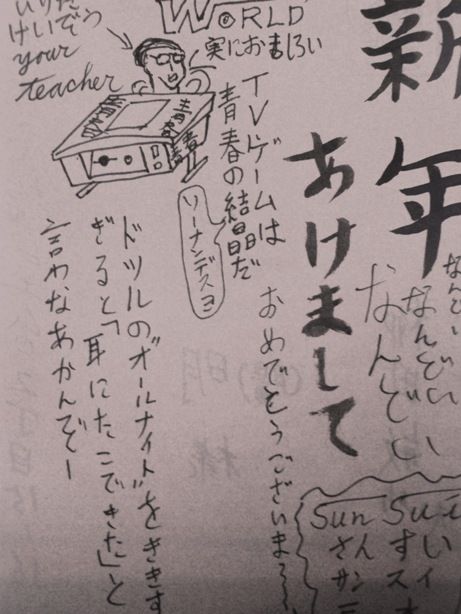 新年
あけまして
なんど
なんどい
なんどい
Sun Sui
さん すい
おめでとうございま〜〜
WORLD
実におもしろい
TVゲームは
青春の結晶だ
ソーナンデスヨ
your
teacher
ドツルの"オールナイト"をききす
ぎると「耳にたこできた」と
言わなあかんぞー